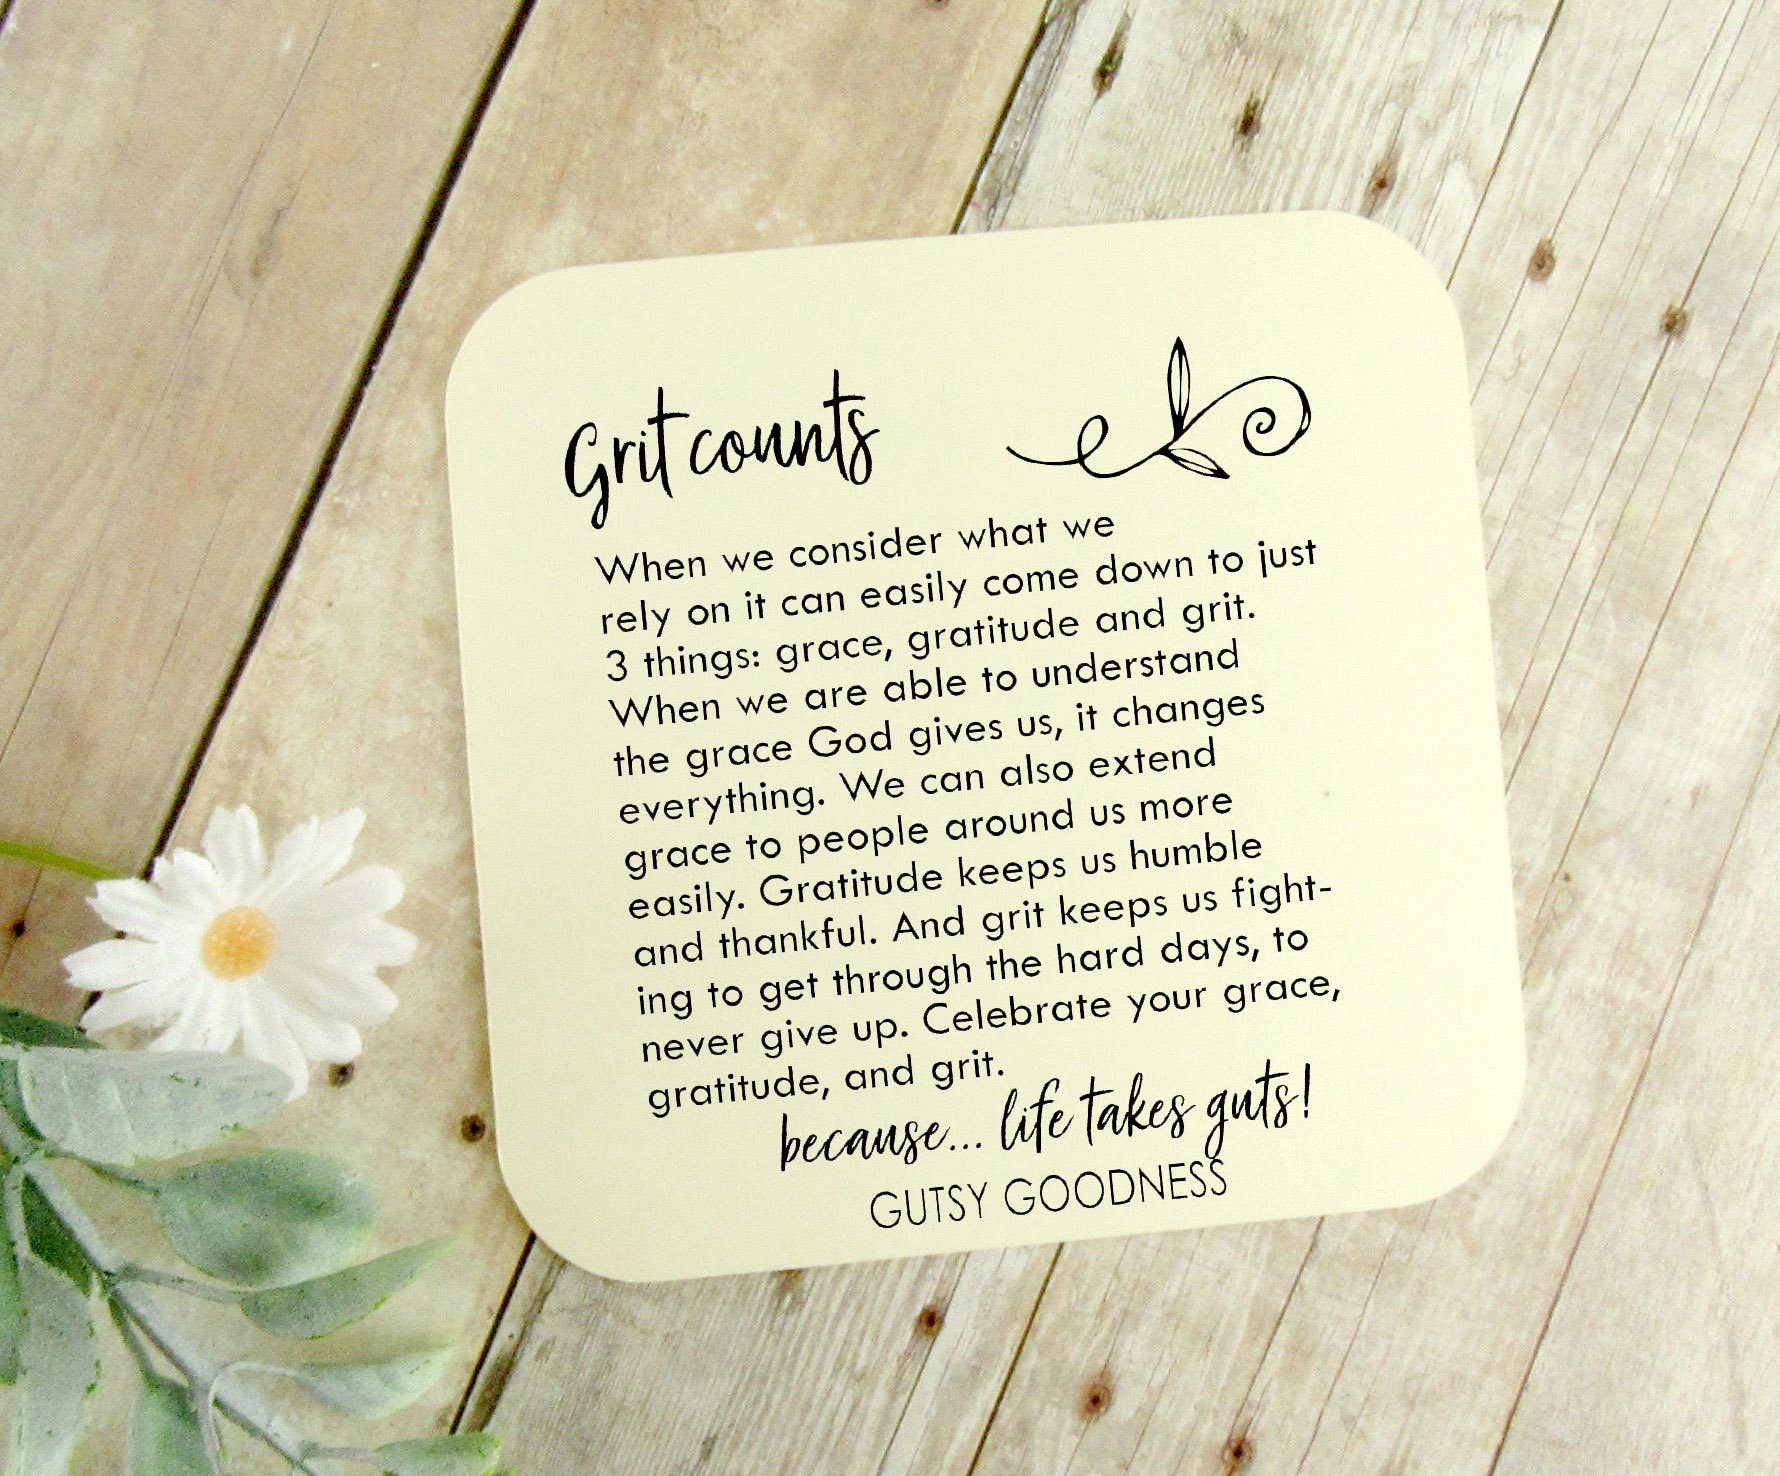 Grit counts
When we consider what we
rely on it can easily come down to just
3 things: grace, gratitude and grit.
When we are able to understand
the grace God gives us, it changes
everything. We can also extend
grace to people around us more
easily. Gratitude keeps us humble
and thankful. And grit keeps us fight-
ing to get through the hard days, to
never give up. Celebrate your grace,
gratitude, and grit.
because... life takes guts!
GUTSY GOODNESS